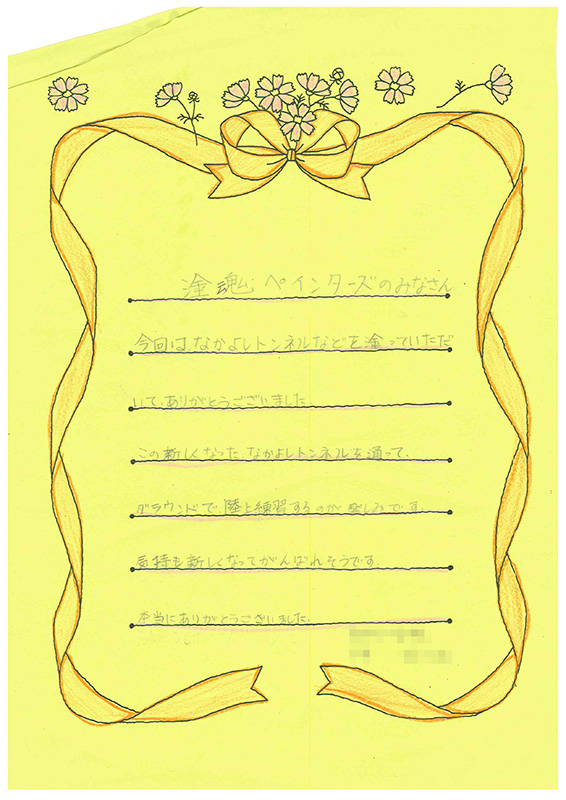 塗魂ペインターズのみなさん
今回は、なかよしトンネルなどを塗っていただ
いて、ありがとうございました。
この新しくなった、なかよしトンネルを通って、
グラウンドで、陸上練習するのが楽しみです。
気持も新しくなってがんばれそうです。
本当にありがとうございました。